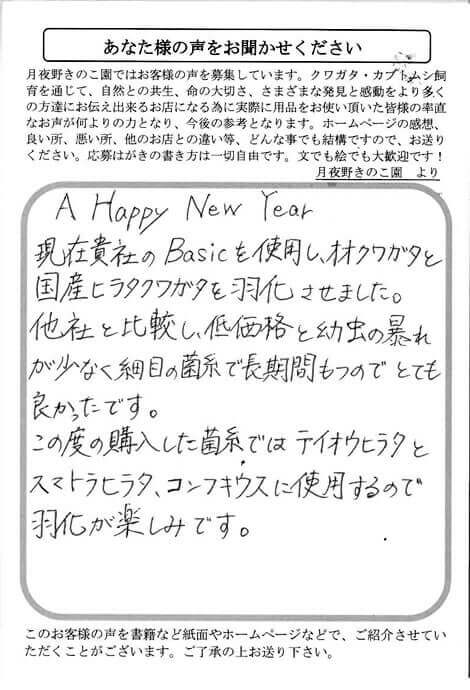 あなた様の声をお聞かせください
月夜野きのこ園ではお客様の声を募集しています。クワガタ・カブトムシ飼
育を通じて、自然との共生、命の大切さ、さまざまな発見と感動をより多く
の方達にお伝え出来るお店になる為に実際に用品をお使い頂いた皆様の率直
なお声が何よりの力となり、今後の参考となります。ホームページの感想、
良い所、悪い所、他のお店との違い等、どんな事でも結構ですので、お送り
ください。応募はがきの書き方は一切自由です。文でも絵でも大歓迎です！
月夜野きのこ園　より
A Happy New Year
現在貴社のBasicを使用し、オオクワガタと
国産ヒラタクワガタを羽化させました。
他社と比較し、低価格と幼虫の暴れ
が少なく細目の菌糸で長期間もつのでとても
良かったです。
この度の購入した菌糸ではテイオウヒラタと
スマトラヒラタ、コンフキウスに使用するので
羽化が楽しみです。
このお客様の声を書籍など紙面やホームページなどで、ご紹介させてい
ただくことがございます。ご了承の上お送り下さい。